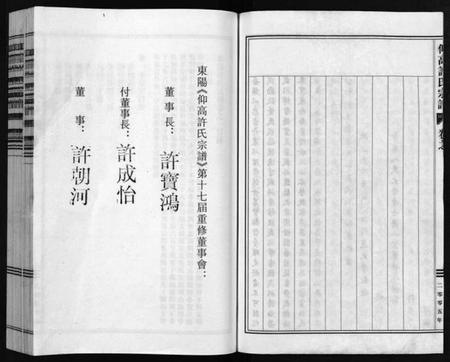 仰高許氏宗譜
二〇〇五年
東陽《仰高許氏宗譜》第十七届重修董事會：
董事長：許寶鴻
付董事長：許成怡
董事：許朝河